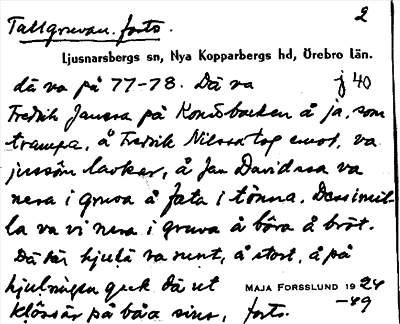 Tallgruvan. forts.
2
Ljusnarsbergs sn, Nya Kopparbergs hd, Örebro län.
då va på 77-78. Då va
j 40
Fredrik Jansa på Konsbacken å ja, som
trampa, å Fredrik Nilssa tog emot, va
jussôm lavkar, å Jan Davidssa va
nera i gruva å fata i tônna. Dessimil-
la va vi nera i gruva å bôra å brôt.
Dä där hjulä va runt, å stort, å på
hjulringen geck dä ut
klôssär på båa sius, forts.
MAJA FORSSLUND 1924
-49